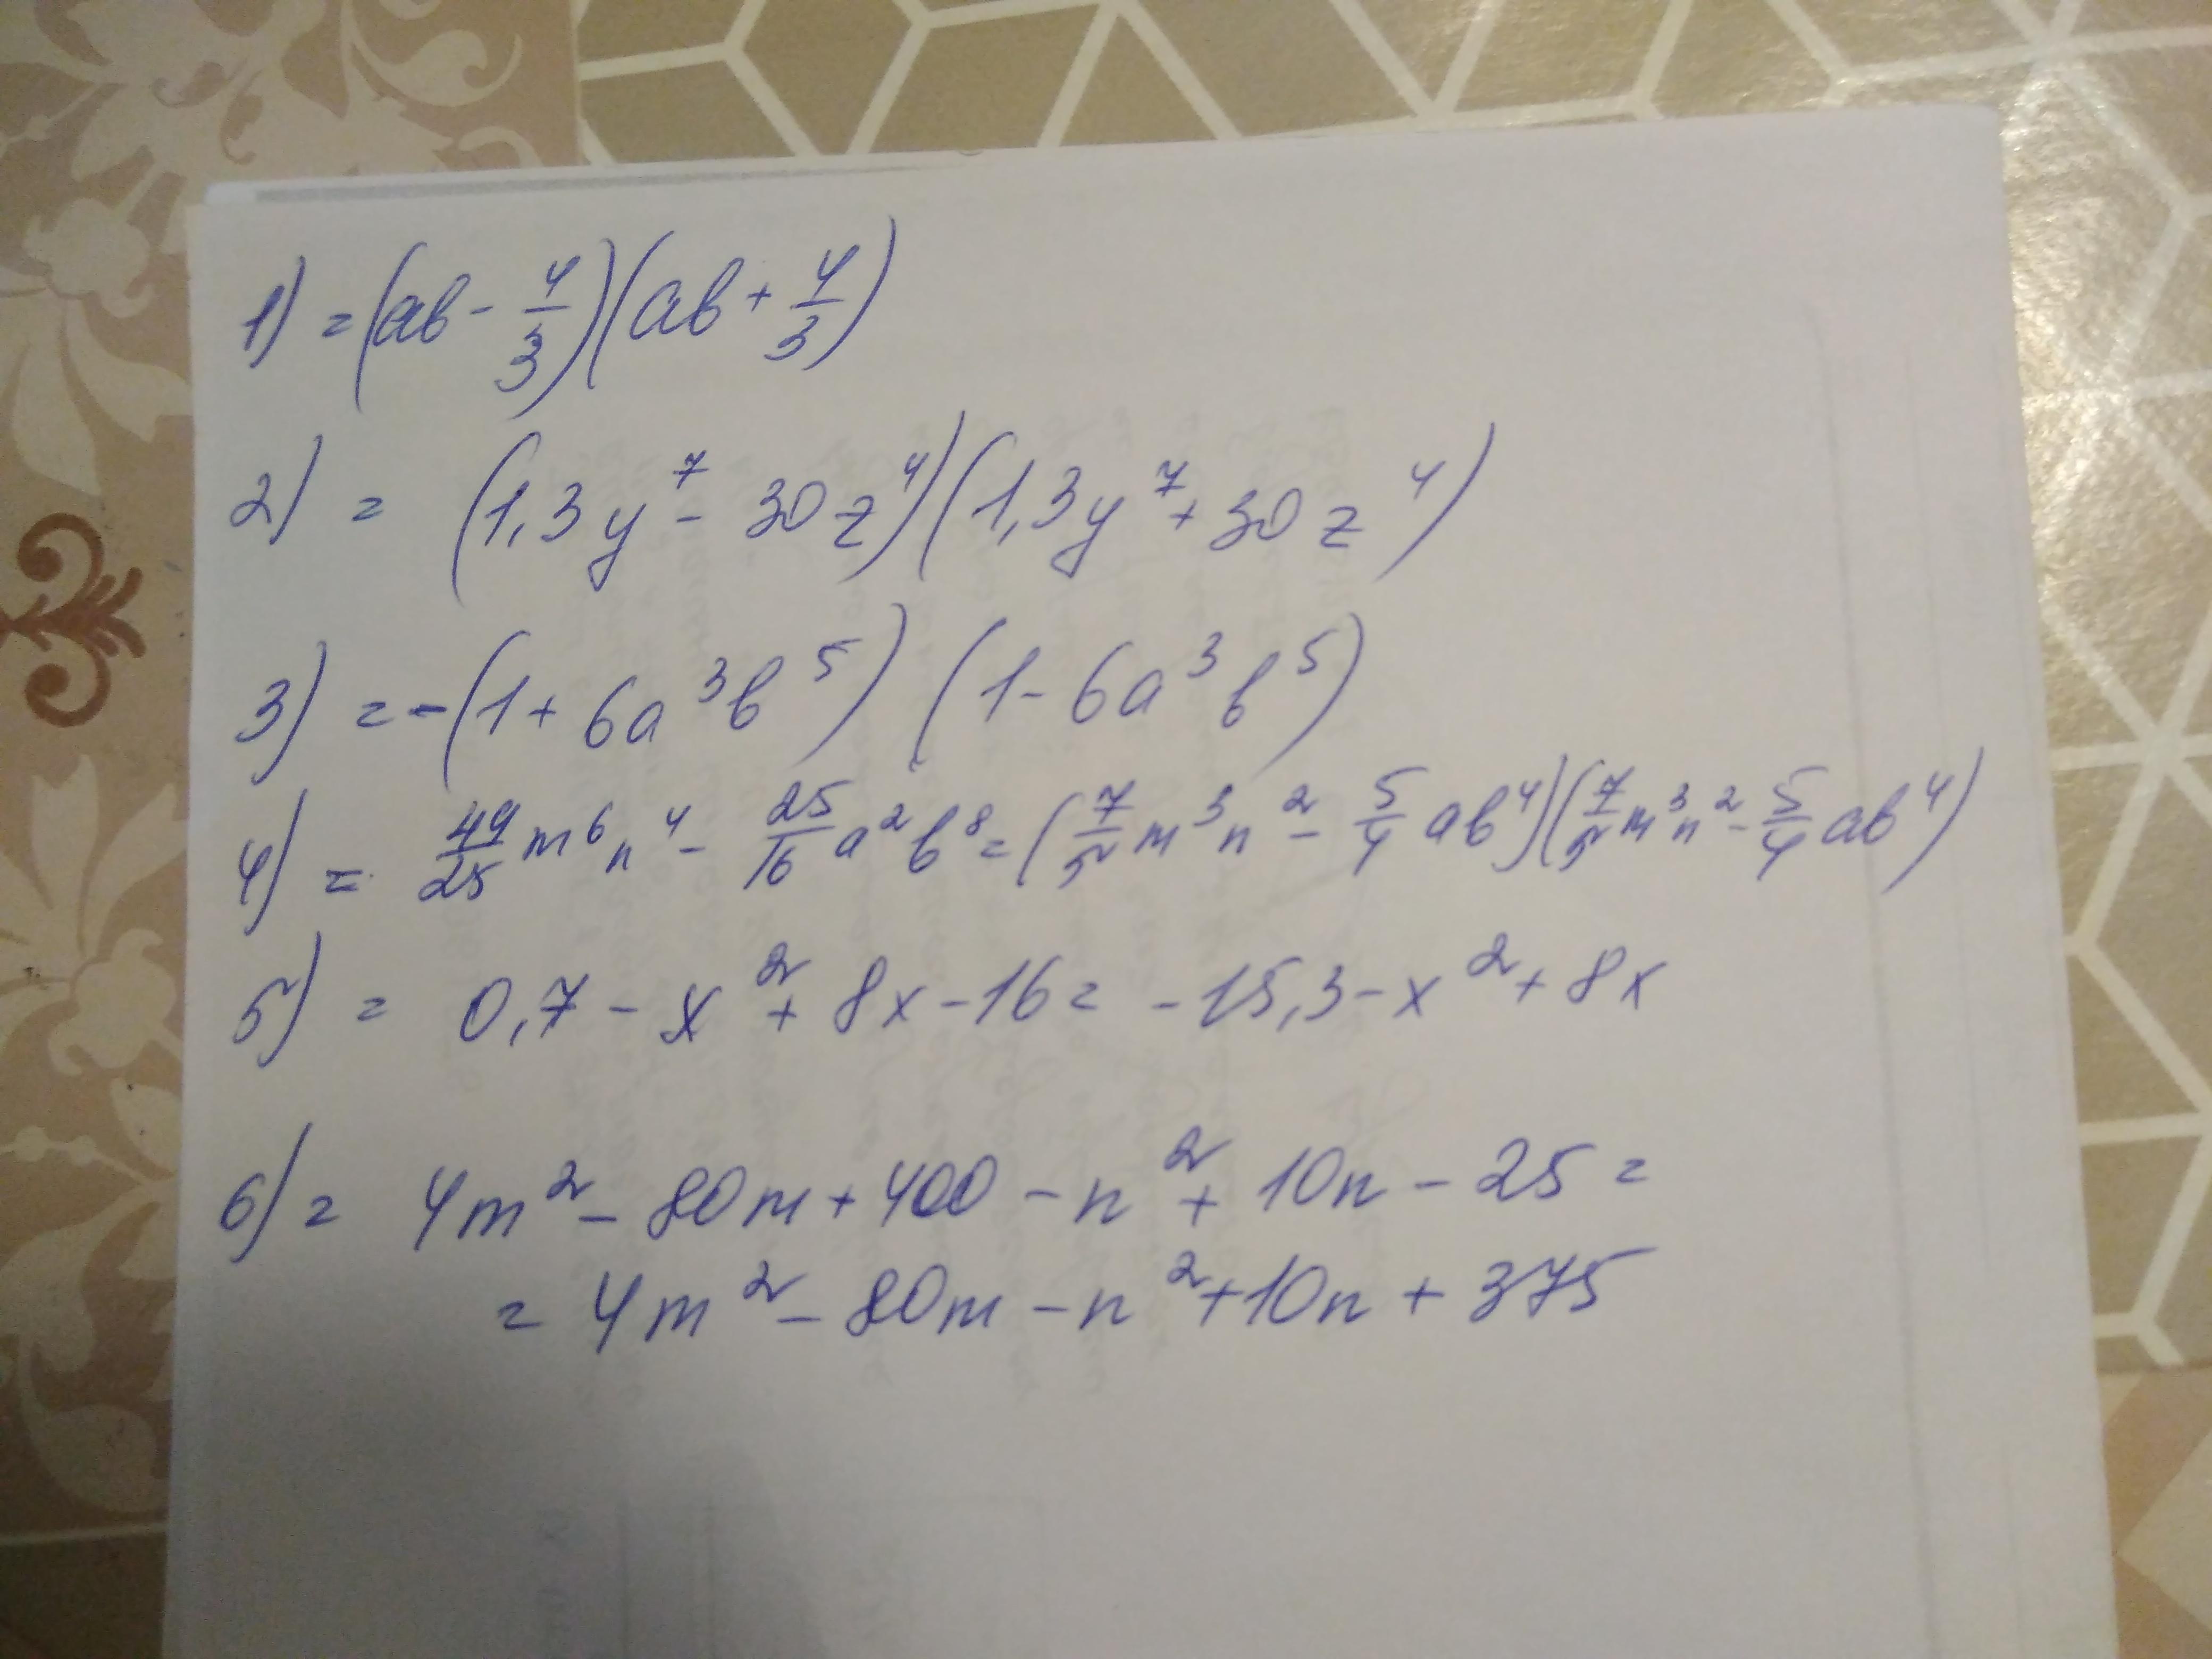 1) = (ab - 4/3)(ab + 4/3)
2) = (1,3y⁷ - 30z⁴)(1,3y⁷ + 30z⁴)
3) = -(1 + 6a³b⁵)(1 - 6a³b⁵)
4) = 49/25 m⁶n⁴ - 25/16 a²b⁸ = (7/5 m³n² - 5/4 ab⁴)(7/5 m³n² - 5/4 ab⁴)
5) = 0,7 - x² + 8x - 16 = -15,3 - x² + 8x
6) = 4m² - 80m + 400 - n² + 10n - 25 =
= 4m² - 80m - n² + 10n + 375